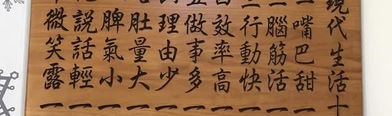 現代生活十
嘴巴甜一
腦筋活一
行動快一
效率高一
做事多一
理由少一
肚量大一
脾氣小一
說話輕一
微笑露一